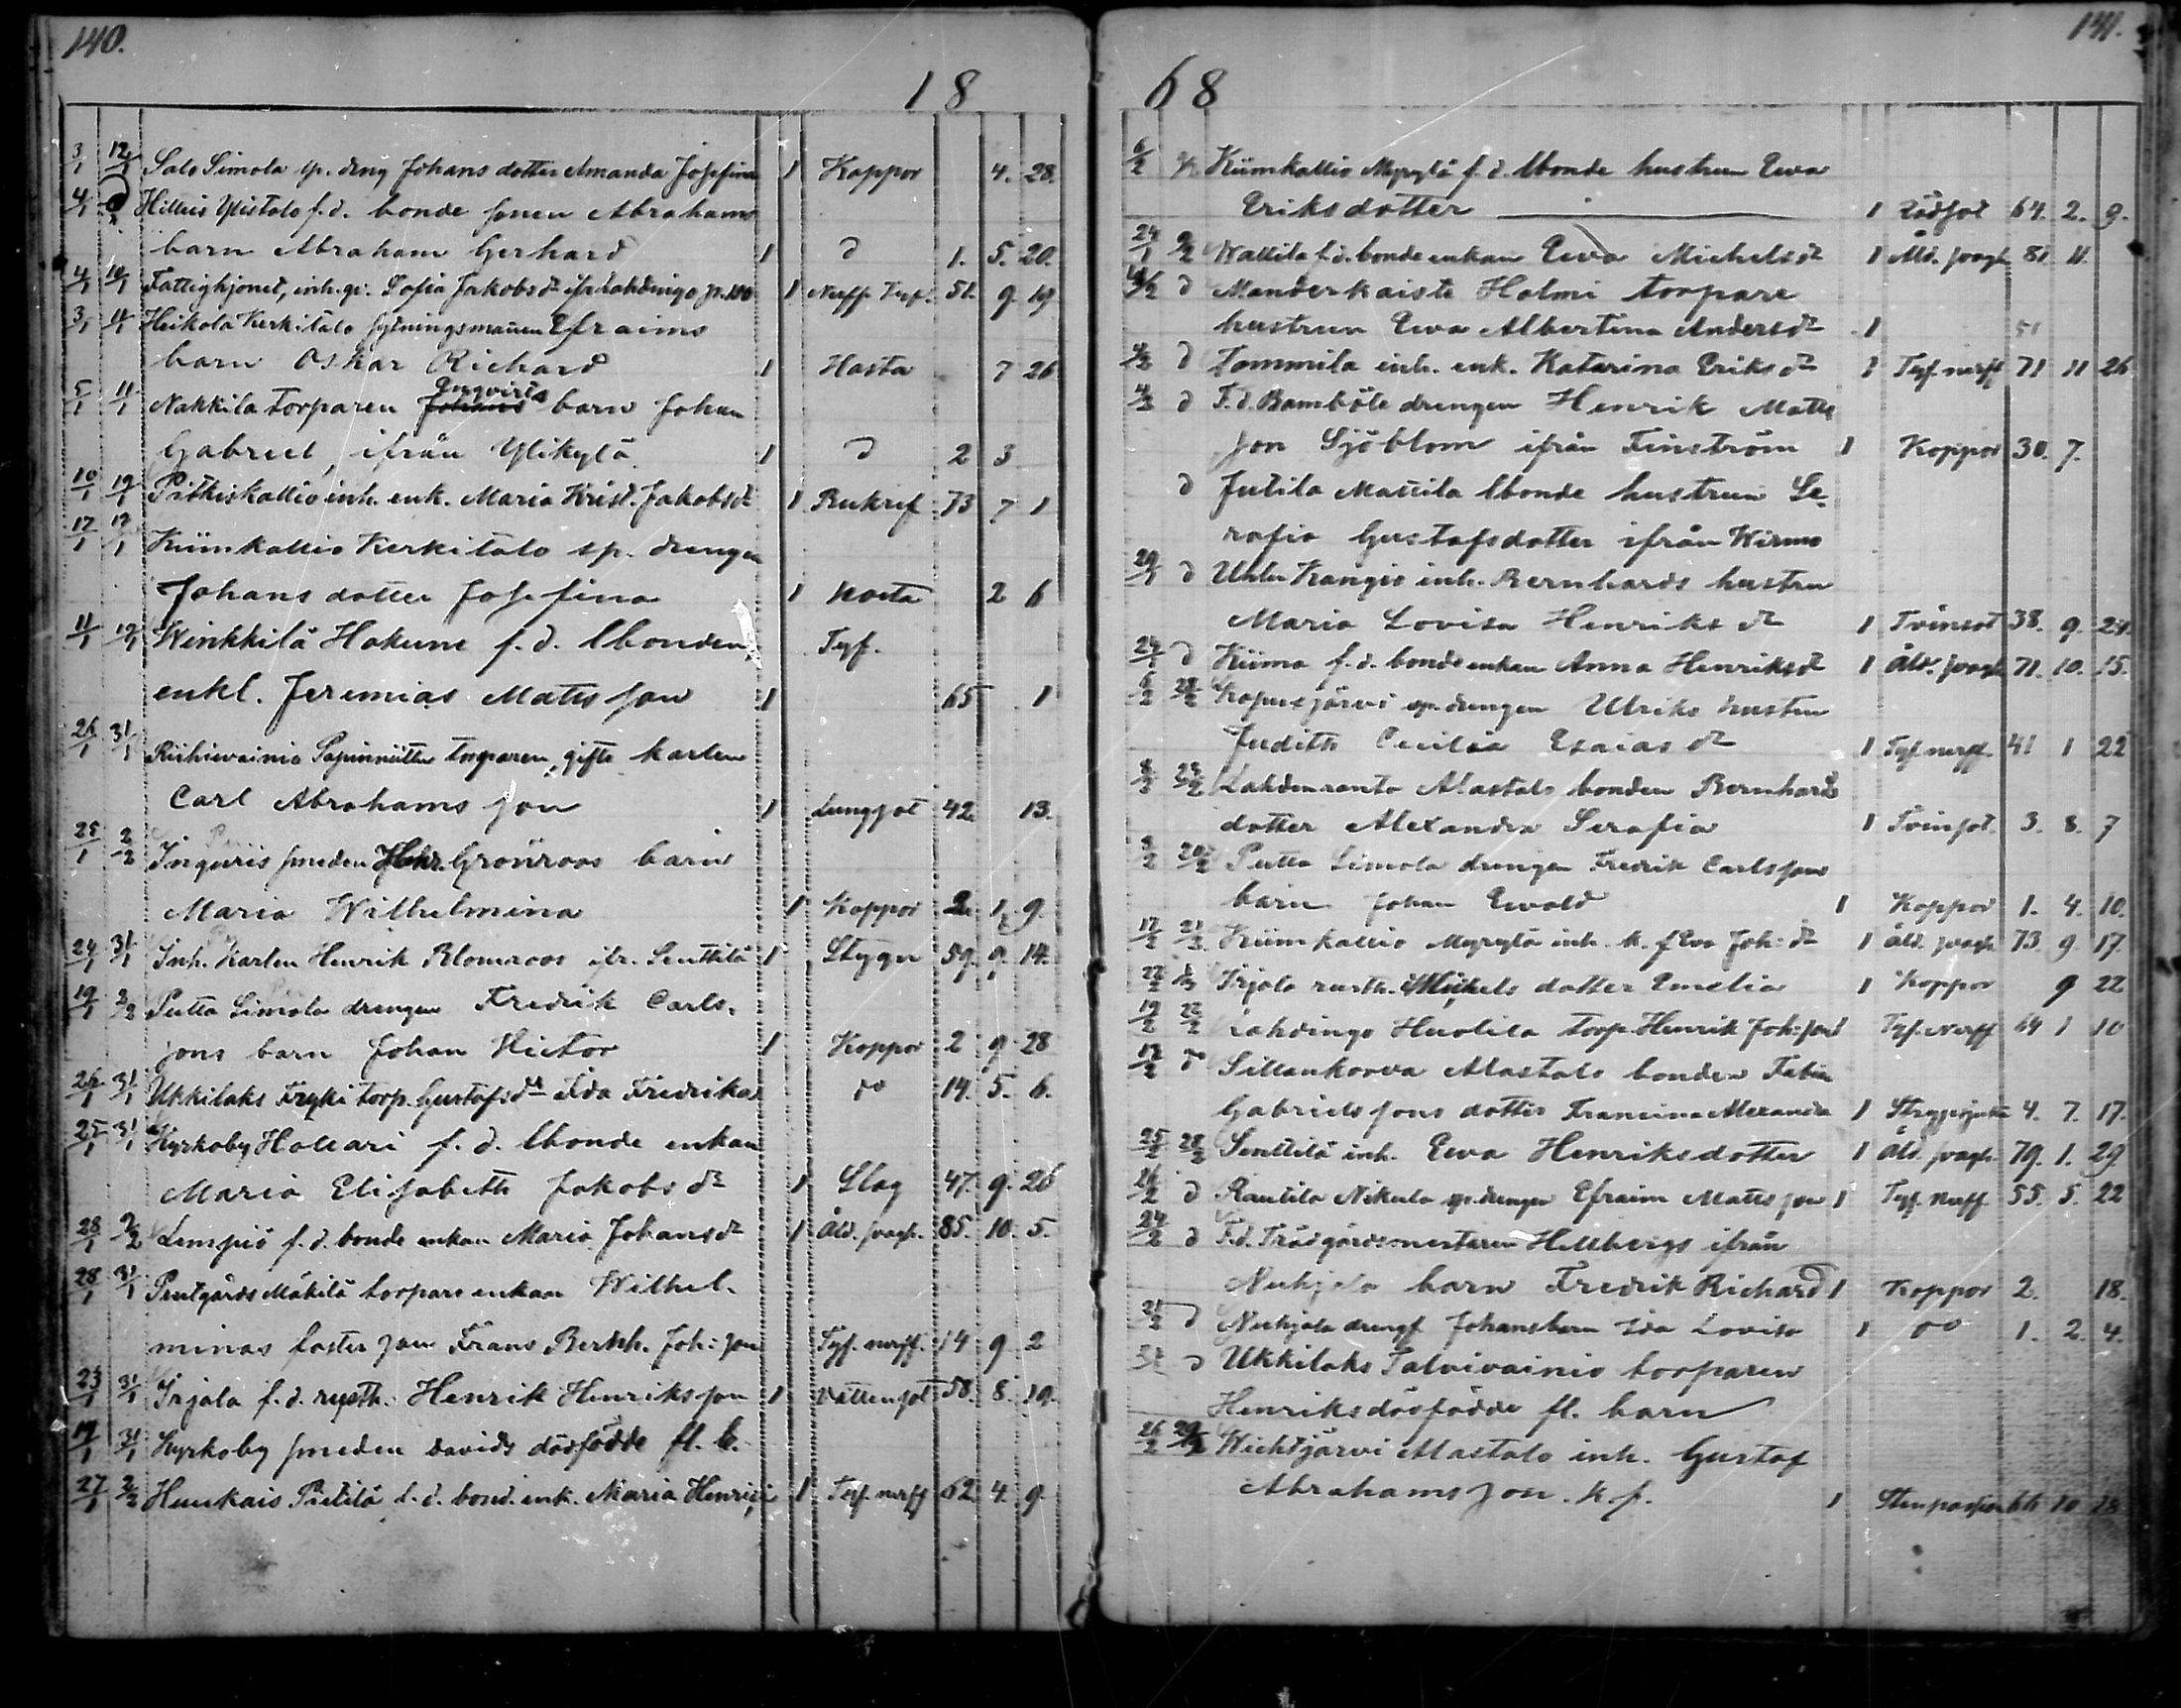 140.
18
3/1 12/1 Salo Simola sp. dreng Johans dotter Amanda Josefina 1 Koppor 4. 28.
4/1 Hillus Ylistalo f.d. bonde sonen Abrahams
barn Abraham Gerhard 1 d 1. 5. 20.
4/1 Fattighjonet, inh. Sofia Jakobsdr ifr. Lahdingo 1 Nerff. Tyf. 51. 9. 19
3/1 Heikola Kerkitalo Efraims
barn Oskar Richard 1 Hosta 7 26
5/1 11/1 Nakkila torparen Engvirts barn Johan
Gabriel, ifrån Ylikylä 1 d 2 3
10/1 19/1 Pitkiskallio inh. enk. Maria Krist. Jakobsdr 1 Bukref 73 7 1
17/1 19/1 Kiimkallio Kerkitalo sp. drengen
Johans dotter Josefina 1 Hosta 2 6
11/1 19/1 Winkkilä Hakume f.d. lbonden Tyf.
enkl. Jeremias Mattsson 1 65 1
26/1 31/1 Riihivainio torparen, gifte karlen
Carl Abrahamsson 1 Lungsot 42. 13.
25/1 2/2 Inguris smeden Grönroos barn
Maria Wilhelmina 1 Koppor 2. 1. 9.
24/1 31/1 Inh. Karlen Henrik Blomroos ifr. Senttilä 1 Stygn 59. 9. 14.
19/1 2/2 Putta Simola drengen Fredrik Carls-
sons barn Johan Victor 1 Koppor 2 9 28
26/1 31/1 Ukkilaks Fryki torp. Gustafsdr Ida Fredrika do 14. 5. 6.
25/1 31/1 Kyrkoby Hollari f.d. lbonde enkan
Maria Elisabeth Jakobsdr 1 Slag 47. 9. 26
28/1 2/2 Lempiö f.d. bonde enkan Maria Johansdr 1 Åld. svagh. 85. 10. 5.
28/1 31/1 Prestgårds Mäkilä torpare enkan Wilhel-
minas foster son Frans Bernh. Joh:son Tyf. nerff. 14 9 2
23/1 31/1 Irjala f.d. rusth. Henrik Henriksson 1 Vattensot 58. 8. 19.
19/1 31/1 Kyrkoby smeden Davids dödfödde fl. b.
27/1 2/2 Hunkais Pietilä f.d. bond. enk. Maria Henrici 1 Tyf. nerff 62. 4. 9.
141.
68
6/2 Kiimkallio Myrylä f.d. lbonde hustrun Ewa
Eriksdotter 1 Rödsot 64. 2. 9.
24/1 9/2 Wallila f.d. bonde enkan Ewa Michelsdr 1 Åld. svagh 81 11.
d Manderkaiste Holmi torpare
hustrun Ewa Albertina Andersdr 1 51
4/2 d Tommila inh. enk. Katarina Eriksdr 1 Tyf. nerff 71 11 26
d F.d. Bamböle drengen Henrik Matts
son Sjöblom ifrån Finström 1 Koppor 30. 7.
d Jutila Mattila lbonde hustrun Se-
rafia Gustafsdotter ifrån Wirmo
29/1 d Uhlu Kangis inh. Bernhards hustru
Maria Lovisa Henriksdr 1 Tvinsot 38. 9. 24.
24/1 d Kiima f.d. bonde enkan Anna Henriksdr 1 Åld. svagh 71. 10. 15.
6/2 Kopusjärvi sp. drengen Ulriks hustru
Judith Cecilia Esaiasdr 1 Tyf. nerff. 41 1 22
Lahdenranta Alastalo bonden Bernhards
dotter Alexandra Serafia 1 Tvinsot. 3. 8. 7
Putta Simola drengen Fredrik Carlsson
barn Johan Ewald 1 Koppor 1. 4. 10.
17/2 21/2 Kiimkallio Myrylä inh. Eva Joh:dr 1 åld. svagh. 73. 9. 17.
22/2 Irjala rusth. Michels dotter Emelia 1 Koppor 9 22
19/2 22/2 Lahdingo Huolila torp. Henrik Joh:son Tyf. Nerff 64 1 10
17/2 do Sillankorva Alastalo bonden Fabian
Gabrielssons dotter Francina Alexandra 1 4. 7. 17.
25/2 28/2 Senttilä inh. Ewa Henriksdotter 1 Åld. svagh. 79. 1. 29
26/2 d Rautila Nikula sp. drengen Efraim Mattsson 1 Tyf. nerff. 55. 5. 22
24/2 d F.d. Trädgårdsmestaren Hellbergs ifrån
Nuhjala barn Fredrik Richard 1 Koppor 2. 18.
21/2 d Nuhjala Johans barn Ida Lovisa 1 do 1. 2. 4.
d Ukkilaks Talvivainio torparen
Henriks dödfödde fl. barn
26/2 Wihtjärvi Alastalo inh. Gustaf
Abrahamsson. 1 66 10 28